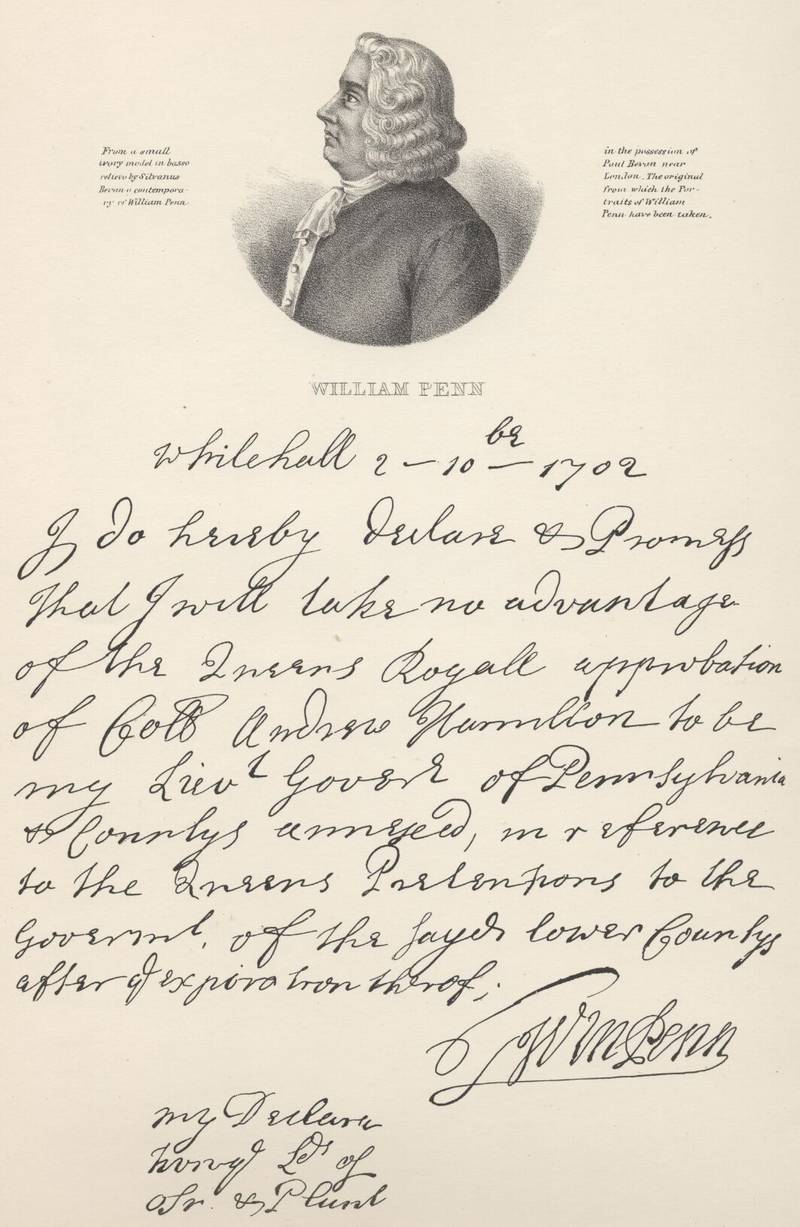 From a small
ivory model in basso
relievo by Silvanus
Bevan a contempora-
ry of William Penn
in the possession of
Paul Bevan near
London. The original
from which the Por-
traits of William
Penn have been taken.
WILLIAM PENN
Whitehall 2 – 10 br – 1702
I do hereby Declare & Promess
that I will take no advantage
of the Queens Royall approbation
of Coll Andrew Hamilton to be
my Lievt Govert of Pennsylvania
& Countys annexed, in reference
to the Queens Pretentions to the
Govermt. of the sayd lower Countys
after ye expiration therof;
Wm Penn
my Declara
to ye Lds of
Tr. & Plant